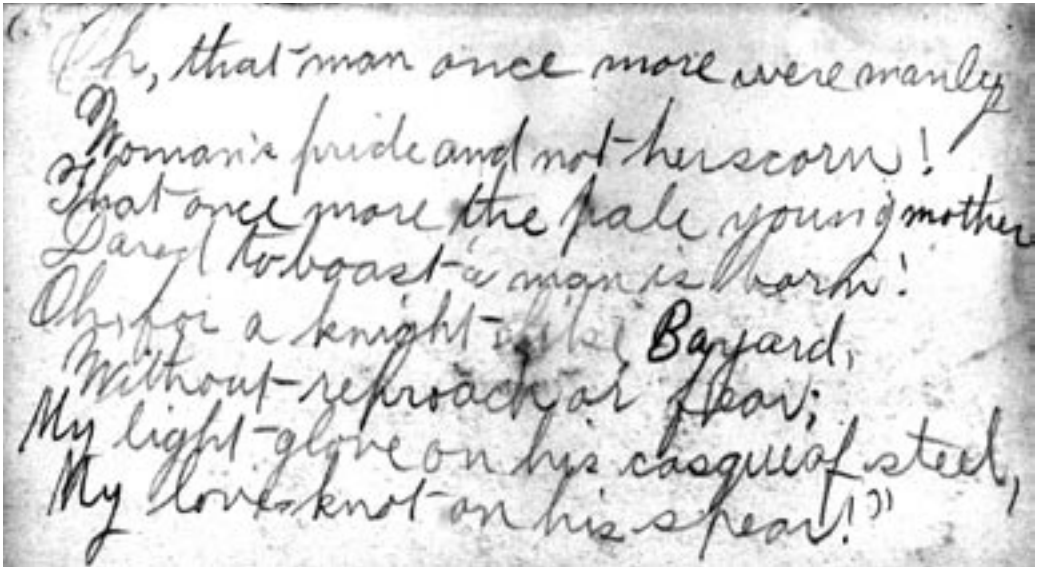 Oh, that man once more were manly
Woman's pride and not her scorn!
That once more the pale young mother
Dared to boast a man is born!
Oh, for a knight like Bayard,
Without reproach or fear;
My light glove on his casque of steel,
My love-knot on his spear!"